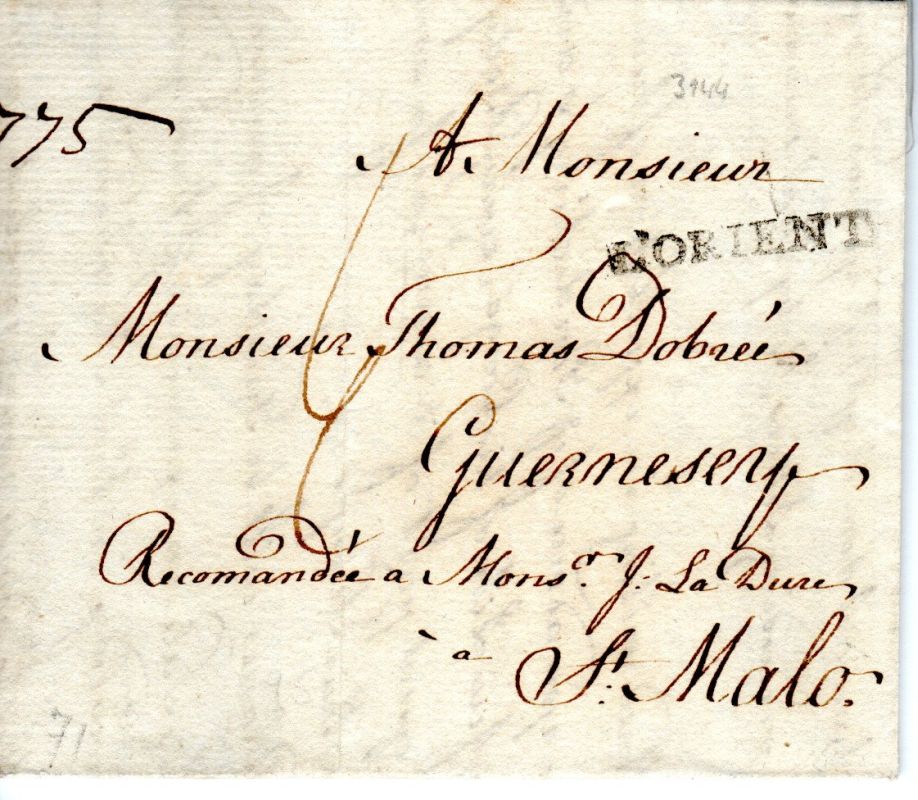 3944
775
A Monsieur
L'ORIENT
Monsieur Thomas Dobrée
Guernesey
Recomandée a Monsr. J: La Dure
à St. Malo.
71